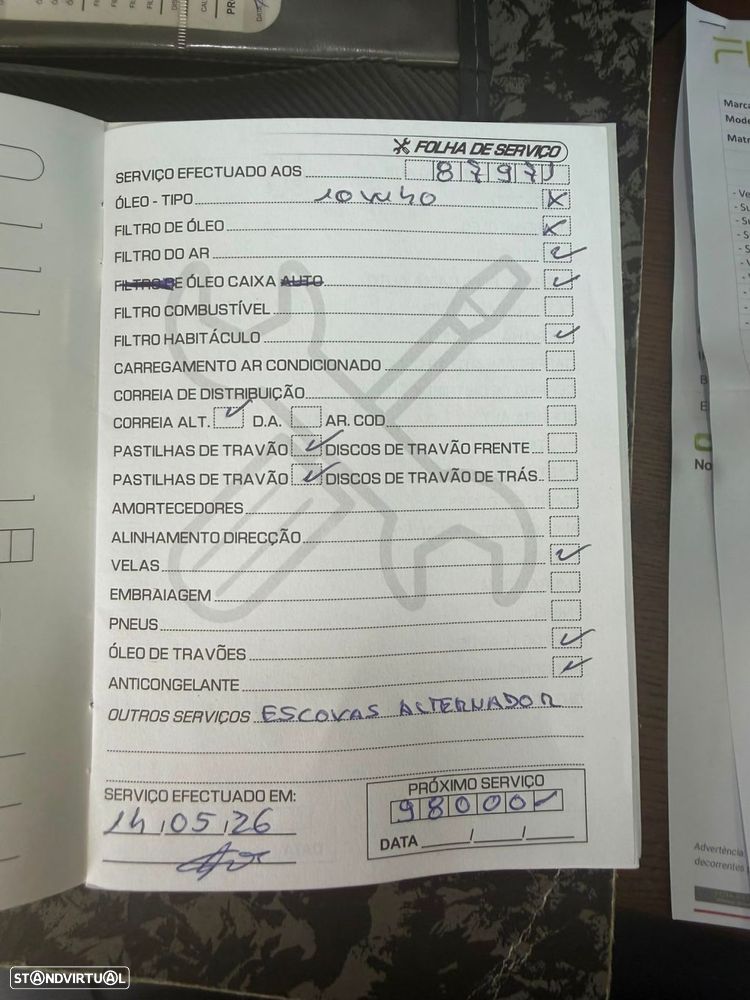 FOLHA DE SERVIÇO
SERVIÇO EFECTUADO AOS 8797
ÓLEO - TIPO 10W40
FILTRO DE ÓLEO
FILTRO DO AR
FILTRO DE ÓLEO CAIXA AUTO
FILTRO COMBUSTÍVEL
FILTRO HABITÁCULO
CARREGAMENTO AR CONDICIONADO
CORREIA DE DISTRIBUIÇÃO
CORREIA ALT. D.A. AR. COD
PASTILHAS DE TRAVÃO DISCOS DE TRAVÃO FRENTE
PASTILHAS DE TRAVÃO DISCOS DE TRAVÃO DE TRÁS
AMORTECEDORES
ALINHAMENTO DIRECÇÃO
VELAS
EMBRAIAGEM
PNEUS
ÓLEO DE TRAVÕES
ANTICONGELANTE
OUTROS SERVIÇOS ESCOVAS ALTERNADOR
SERVIÇO EFECTUADO EM:
14/05/26
PRÓXIMO SERVIÇO
98000
DATA / /
Marca
Mode
Matr
No
Advertência
decorrentes
STANDVIRTUAL